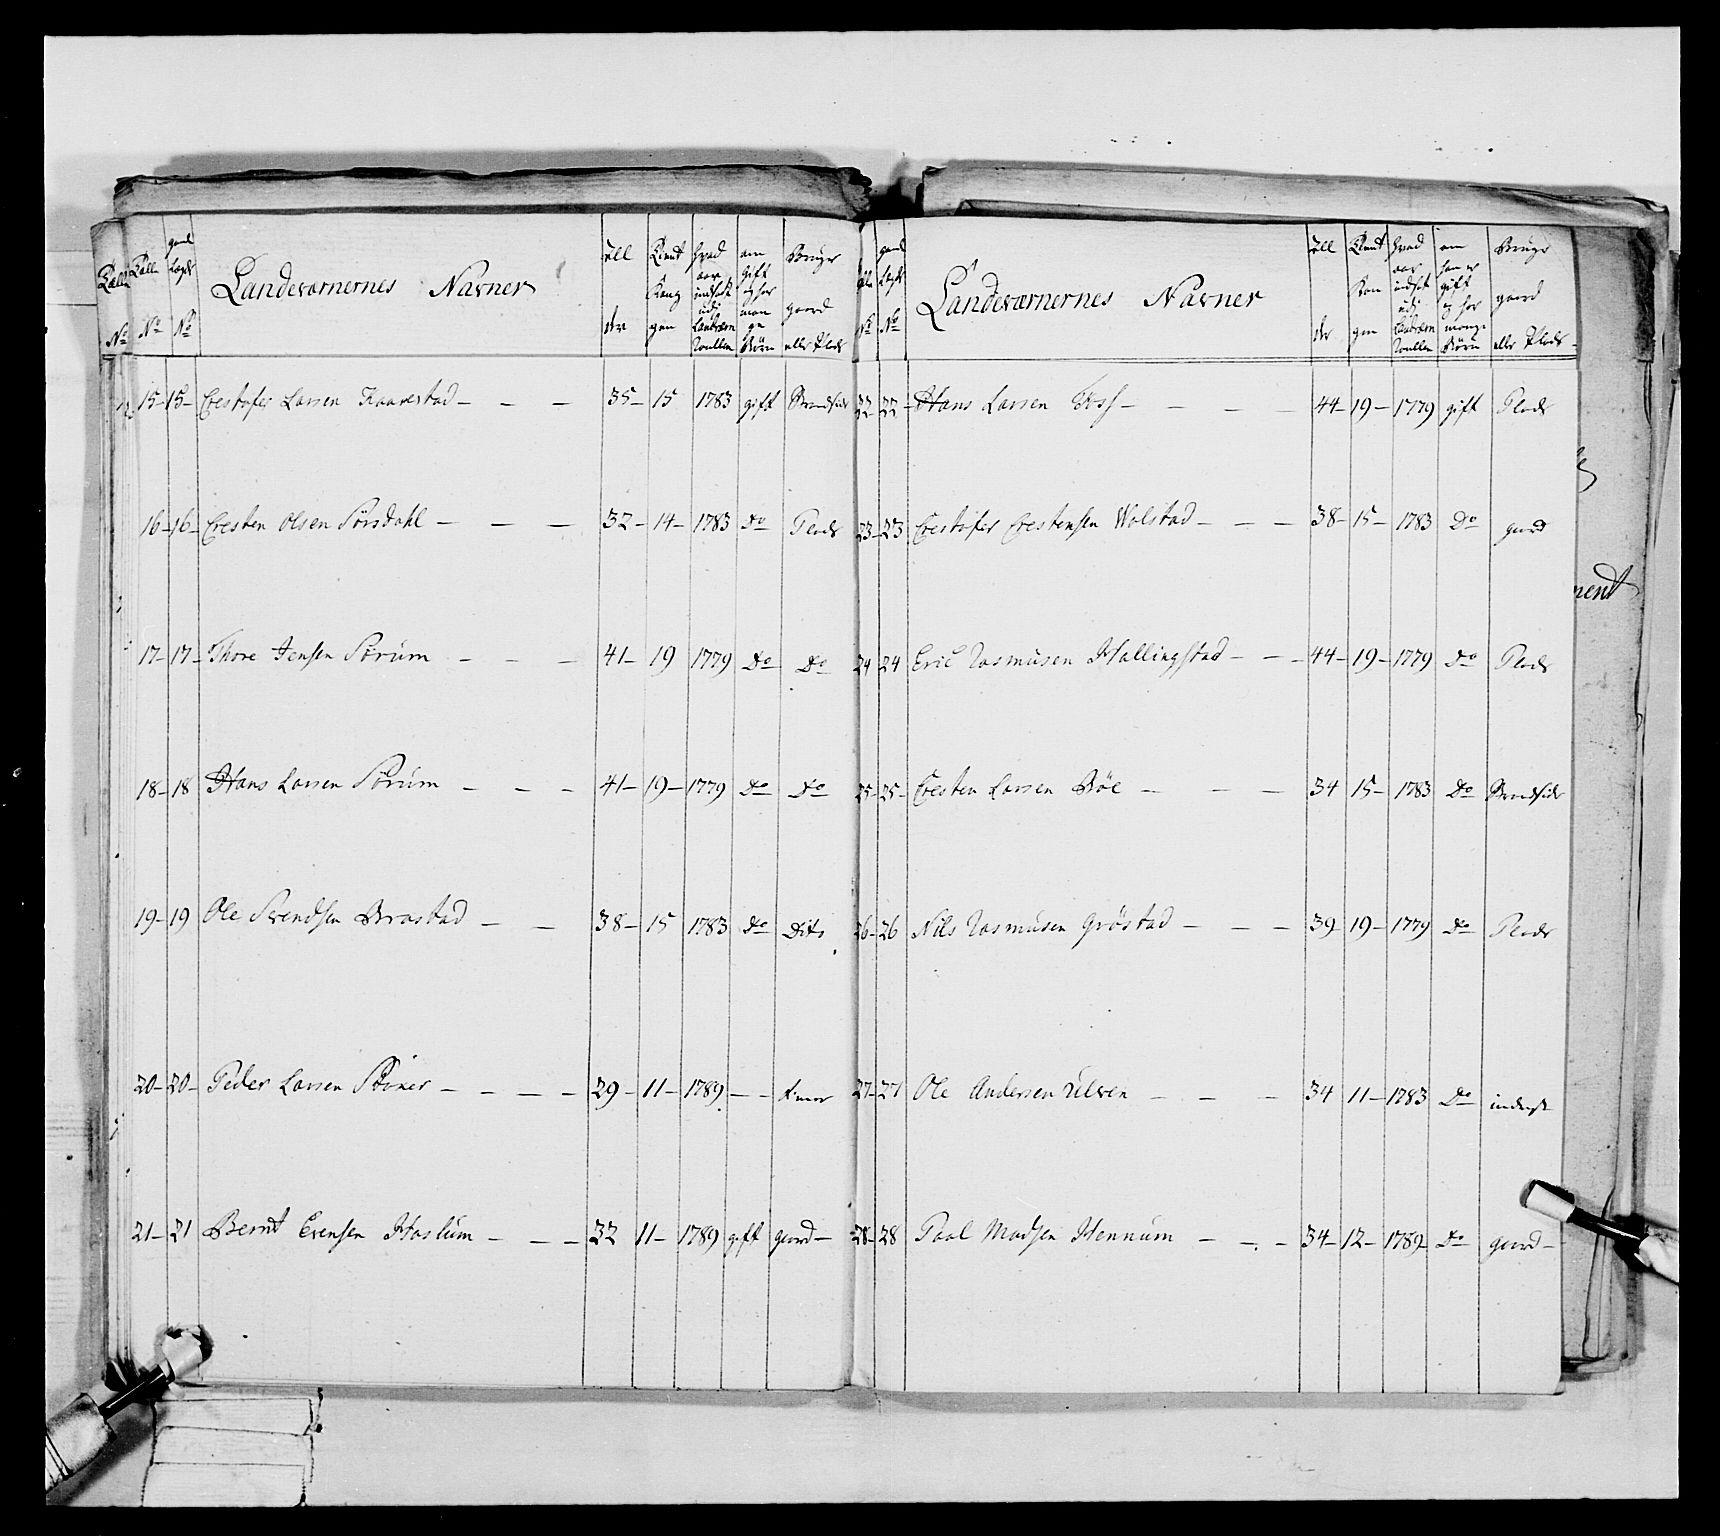 Rulla No Rulla No gamle Lægds No Landeværnernes Navner Alder Tient Kongen hvad aar indsadt udj Landværn Rullen om gift og har mange Børn Bruger gaard eller Plads
15 - 15 - Crestofer Larsen Kaarestad - - - 35 - 15 1783 gift Strandsider
16 - 16 - Cresten Olsen Sörsdahl - - - 32 - 14 - 1783 Do Plads
17 - 17 - Thore Jensen Sörum - - - 41 - 19 1779 Do Do
18 - 18 Hans Larsen Sörum - - - 41 - 19 - 1779 Do Do
19 - 19 Ole Svendsen Brastad - - 38 - 15 1783 Do Dito
20 - 20 - Peder Larsen - - - - 29 - 11 - 1789 - -
21 - 21 Bernt Evensen Haslum - - - 32 11 - 1789 gift gaard -
No gamle Lægds No Landeværnernes Navner Alder Tient Kongen hvad aar indsat udj Landværn Rullen om han er gift og har mange Børn Bruger gaard eller Plads -
22 22 - Hans Larsen Foss - - - - 44 - 19 - 1779 gift Plads
23 - 23 Crestofer Crestensen Wolstad - - - 38 - 15 - 1783 Do gaard
24 24 Eric Rasmusen Hallingstad - - - 44 - 19 - 1779 Do Plads
25 - 25 - Cresten Larsen Böe - - - 34 15 - 1783 Do Strandsider
26 - 26 Nils Rasmusen Gröstad - - - 39 19 - 1779 Do Plads
27 - 27 Ole Andersen Ulven - - - 34 11 - 1783 Do inderst
28 - 28 Paal Madsen Hennum - - - 34 - 12 - 1789 Do gaard -
ment